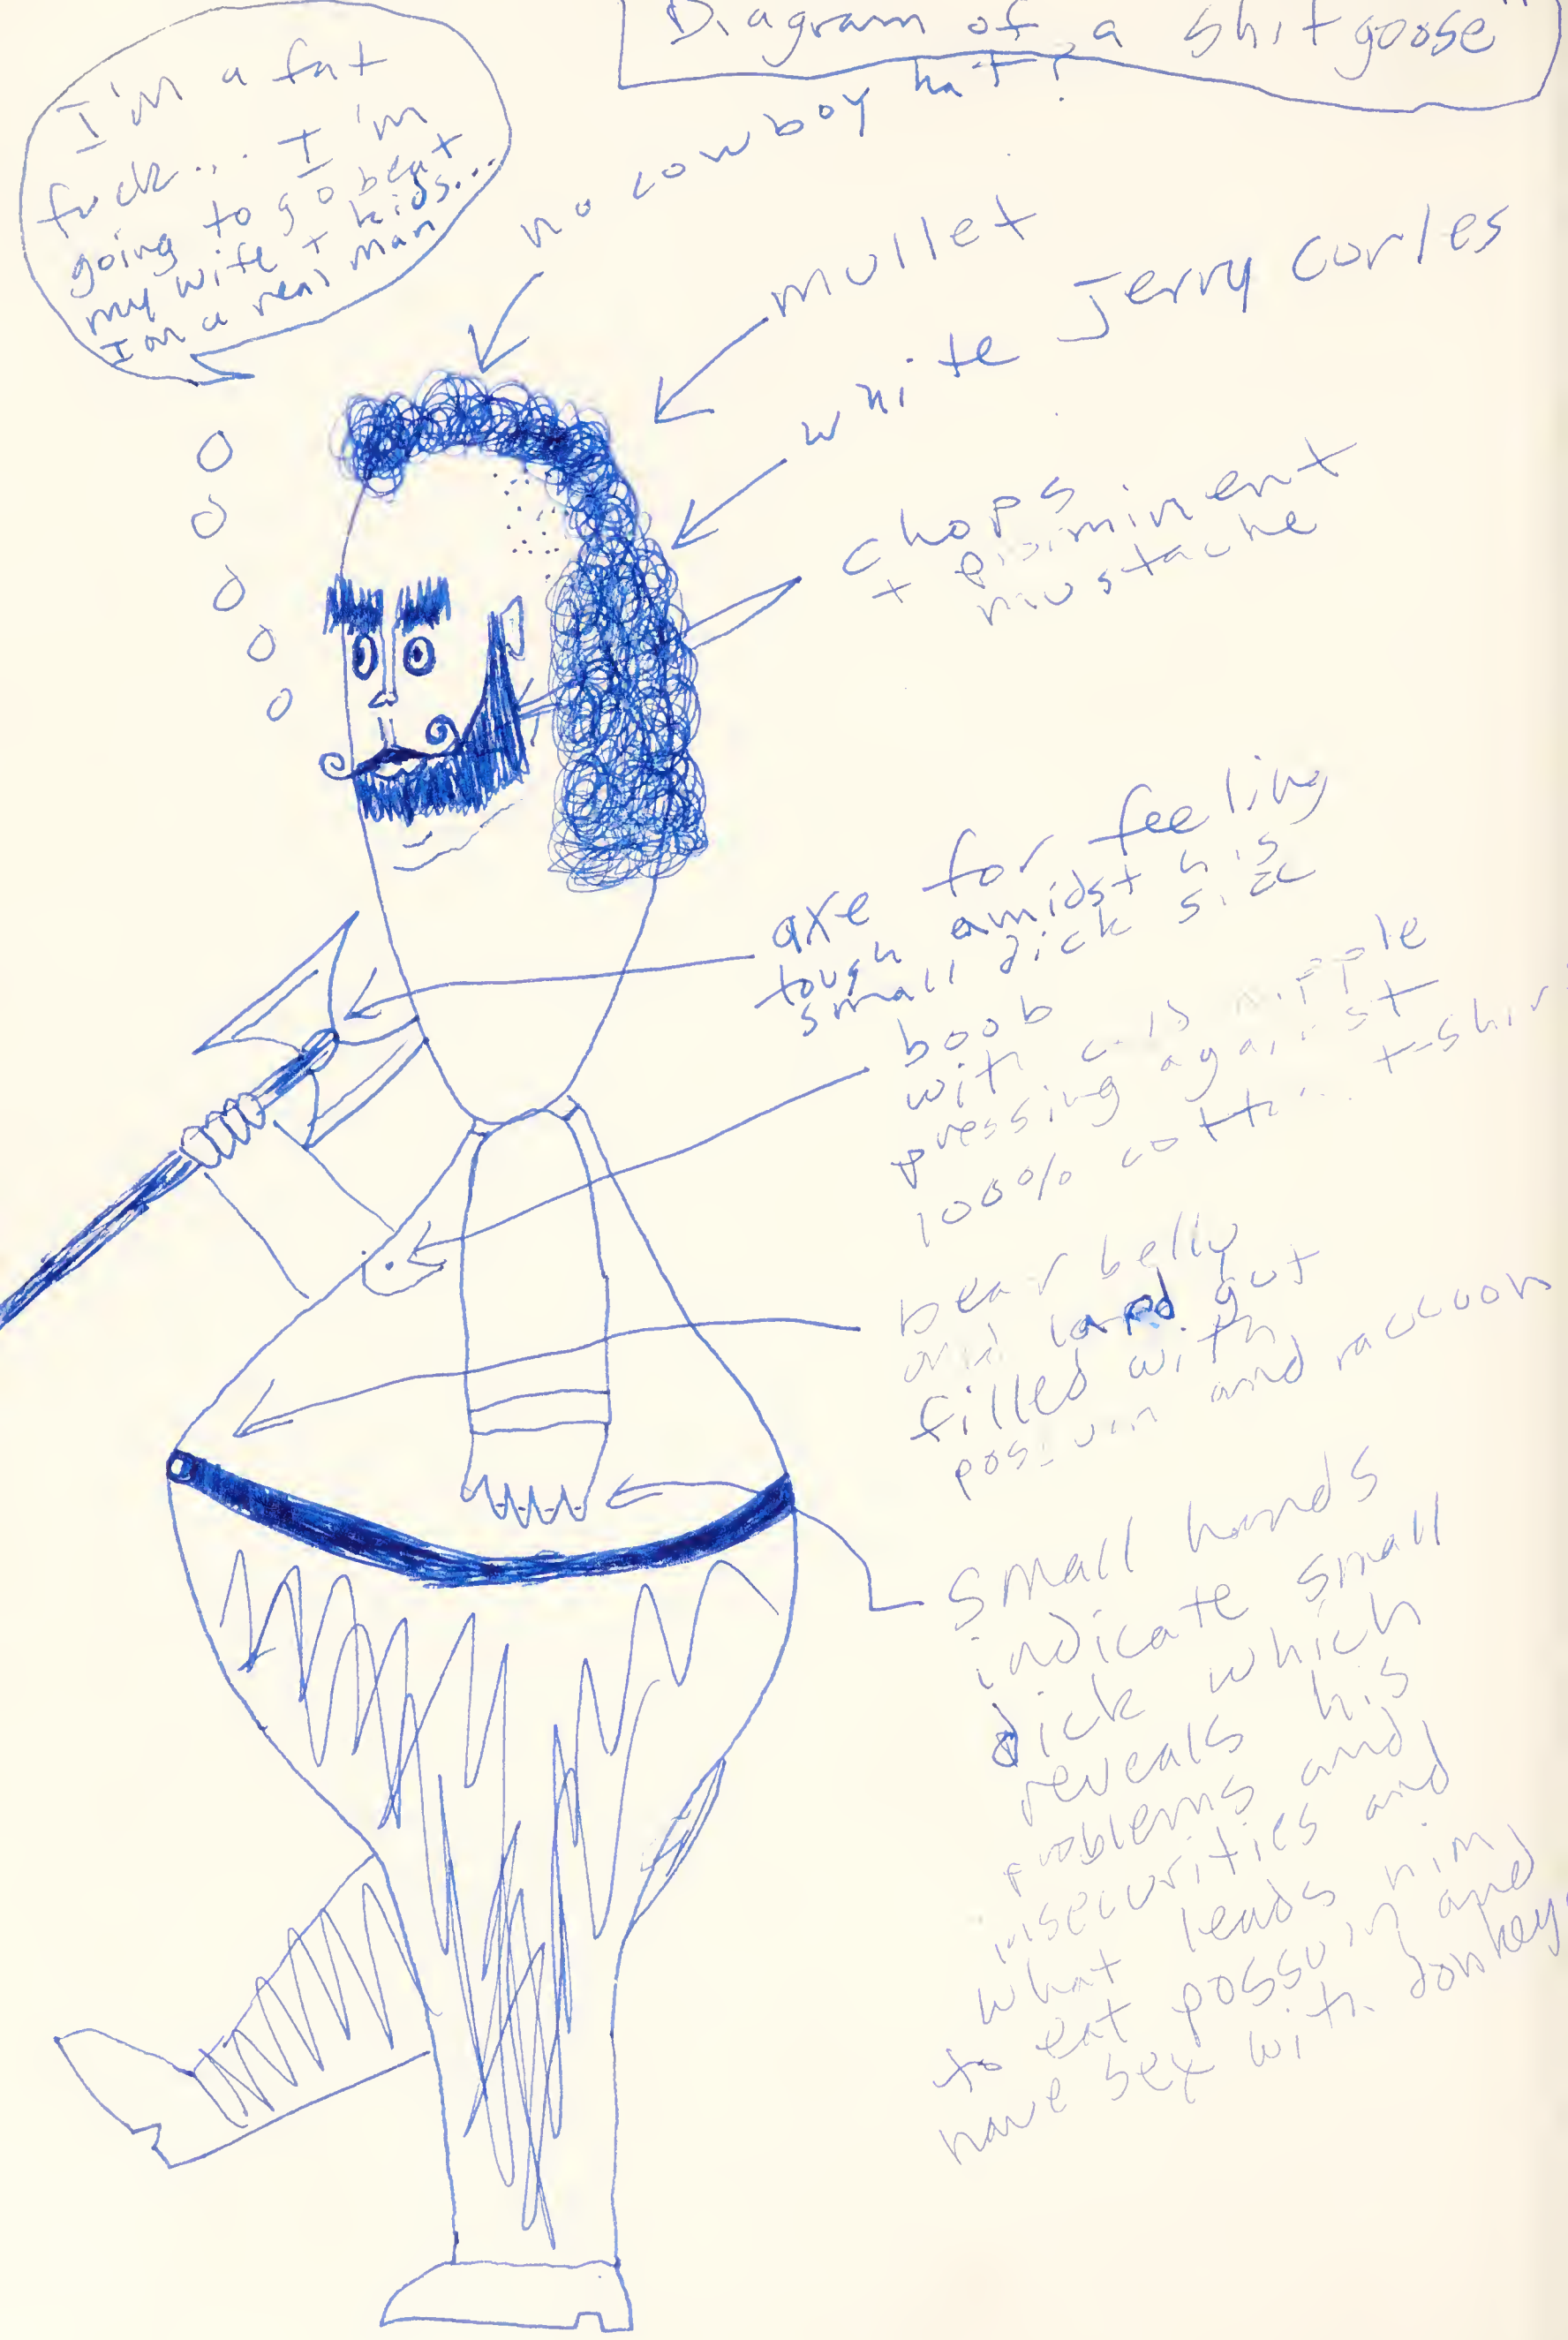 "Diagram of a shitgoose"
I'm a fat
fuck... I'm
going to go beat
my wife + kids...
I'm a real man
no cowboy hat?
mullet
white Jerry Curles
chops
+ prominent
mustache
axe for feeling
tough amidst his
small dick size
boob
with nipple
pressing against
100% cotton t-shirt
bear belly
and lard gut
filled with
possum and raccoon
small hands
indicate small
dick which
reveals his
problems and
insecurities and
what leads him
to eat possum and
have sex with donkeys